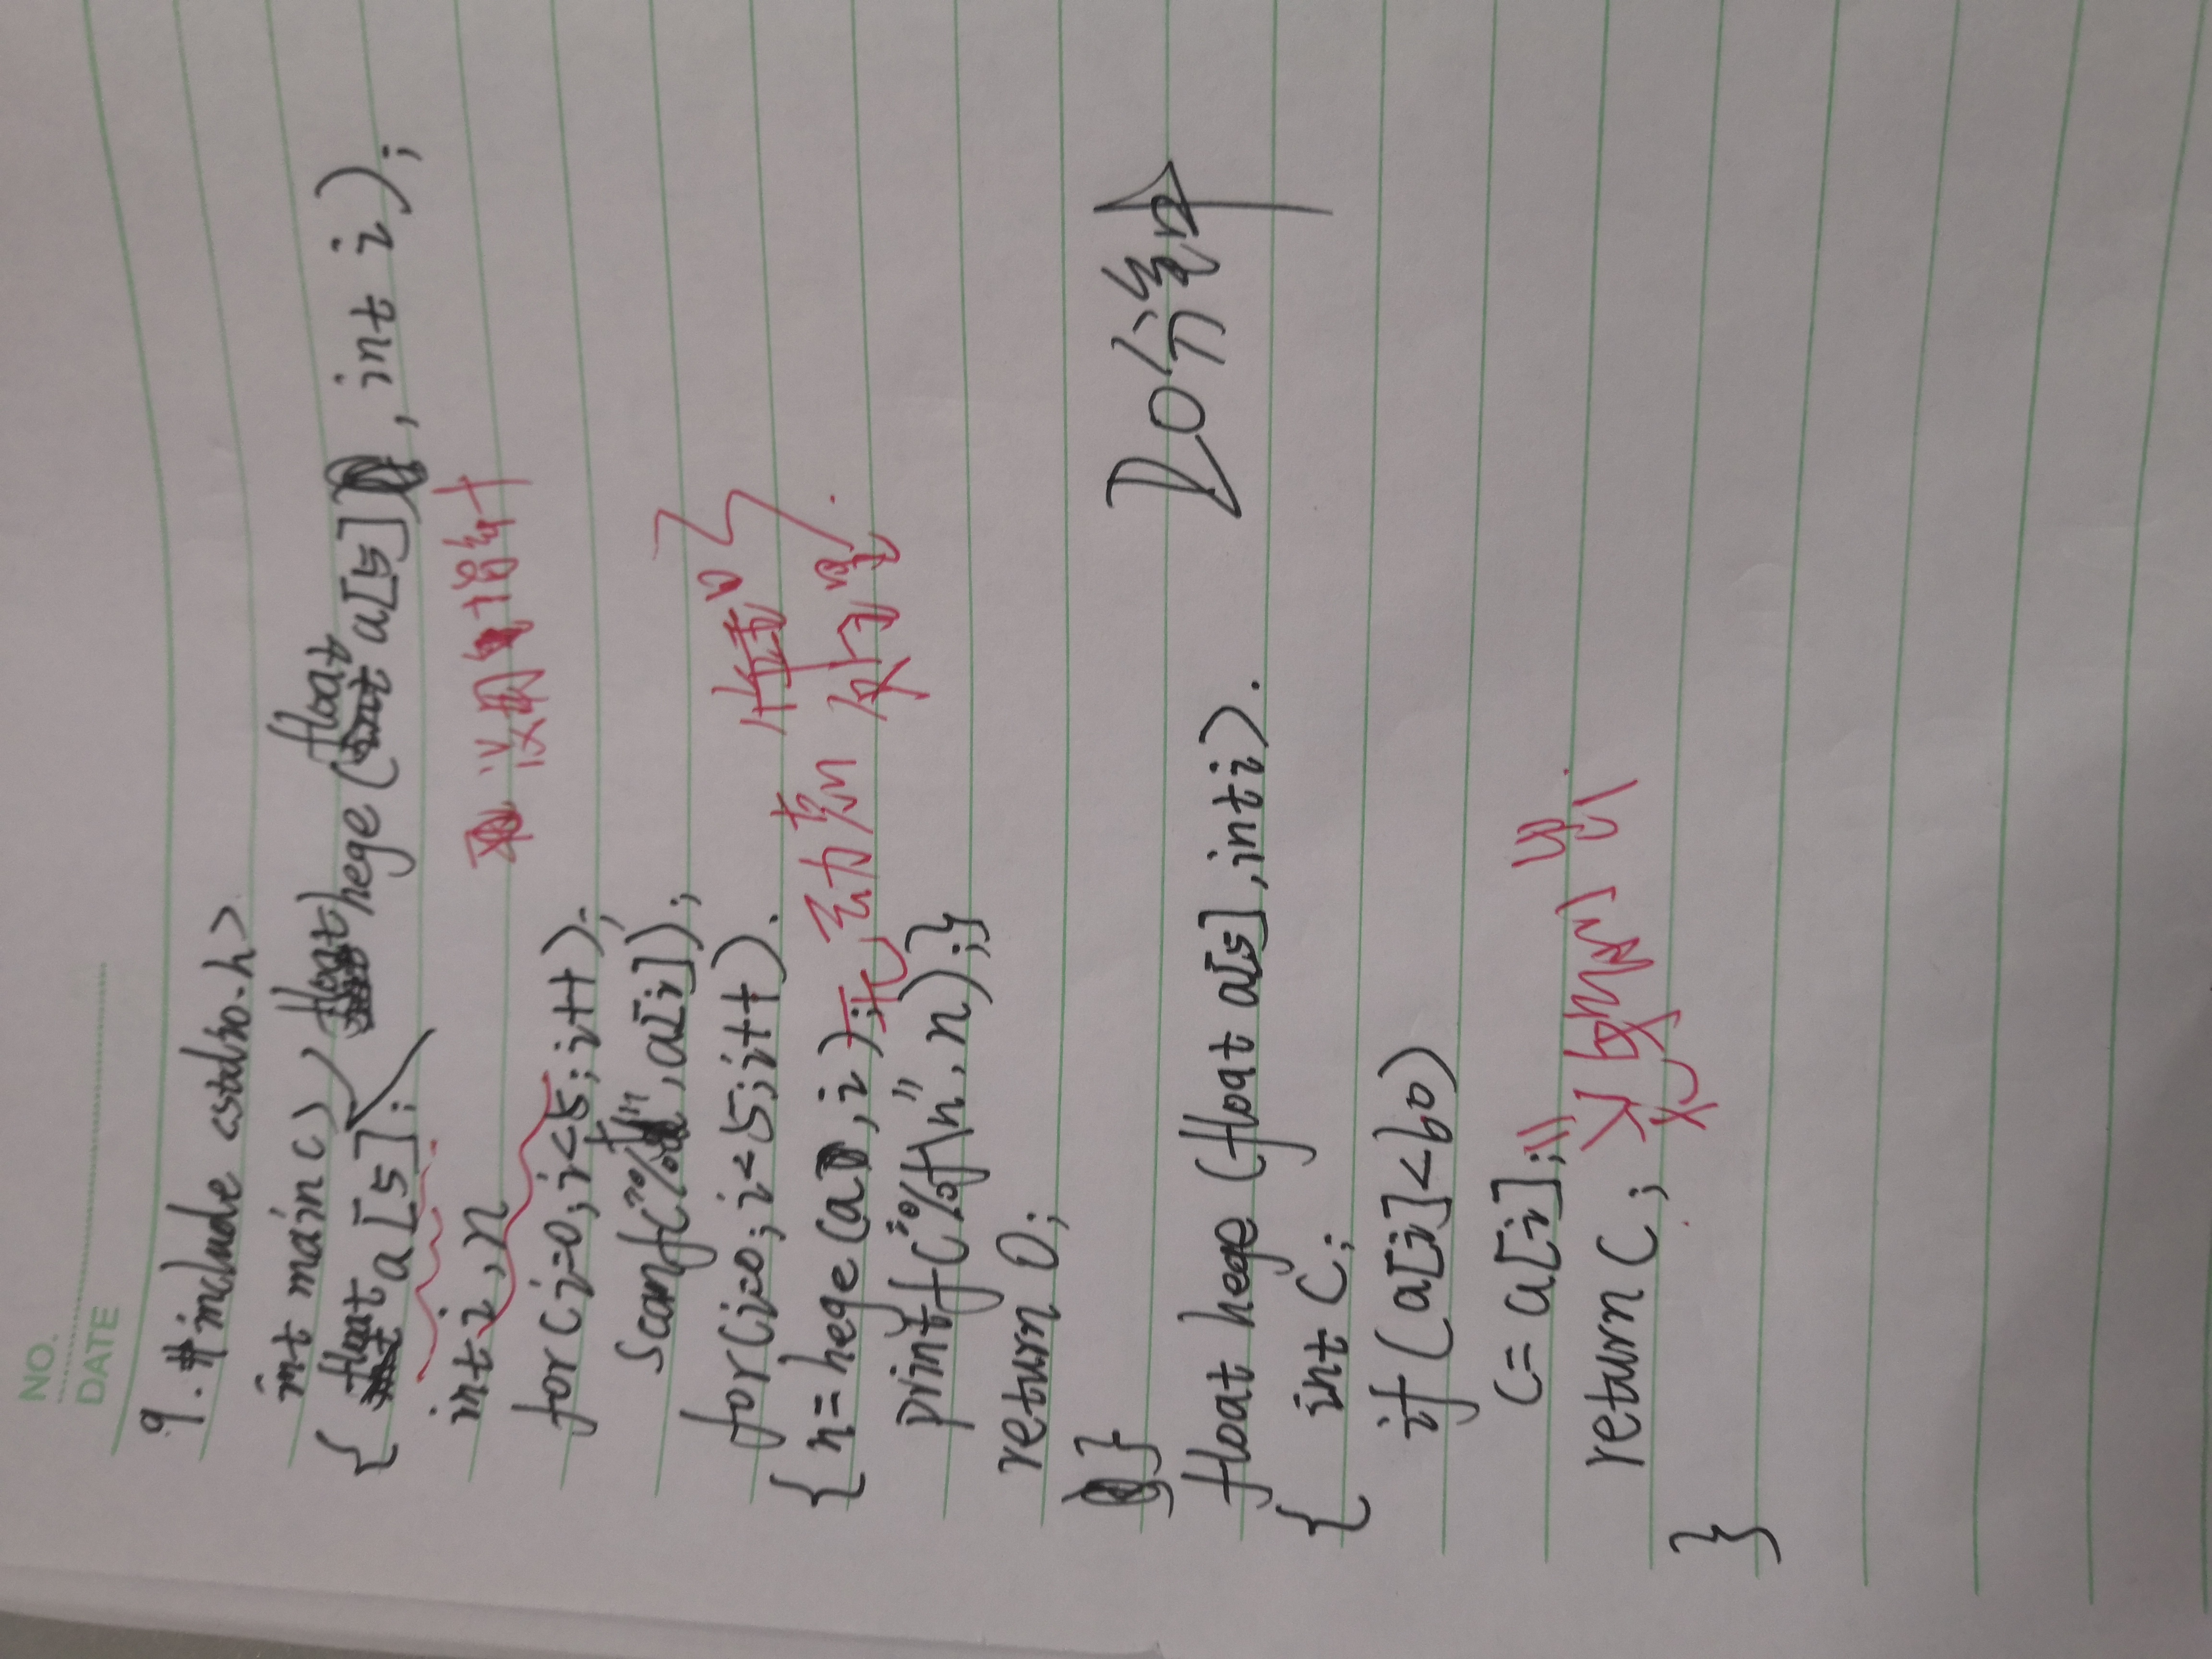 NO.
DATE
9. #include <stdio.h>
int main()
{ float a[5]; float hege (float a[5], int i);
int i, n
没用指针
for(i=0; i<5; i++);
scanf("%f", a[i]);
for(i=0; i<5; i++).
{ n=hege(a, i);
无动态
处理
printf("%f\n", n);}
return 0;
}
20分钟
float hege (float a[5], int i).
{ int c;
if (a[i]<60)
c= a[i];
return c;
}